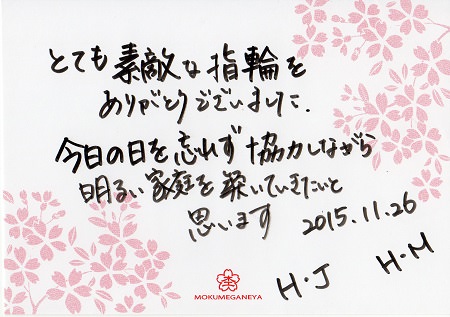 とても素敵な指輪を
ありがとうございました.
今日の日を忘れず協力しながら
明るい家庭を築いていきたいと
思います 2015.11.26
H・J H・M
MOKUMEGANEYA